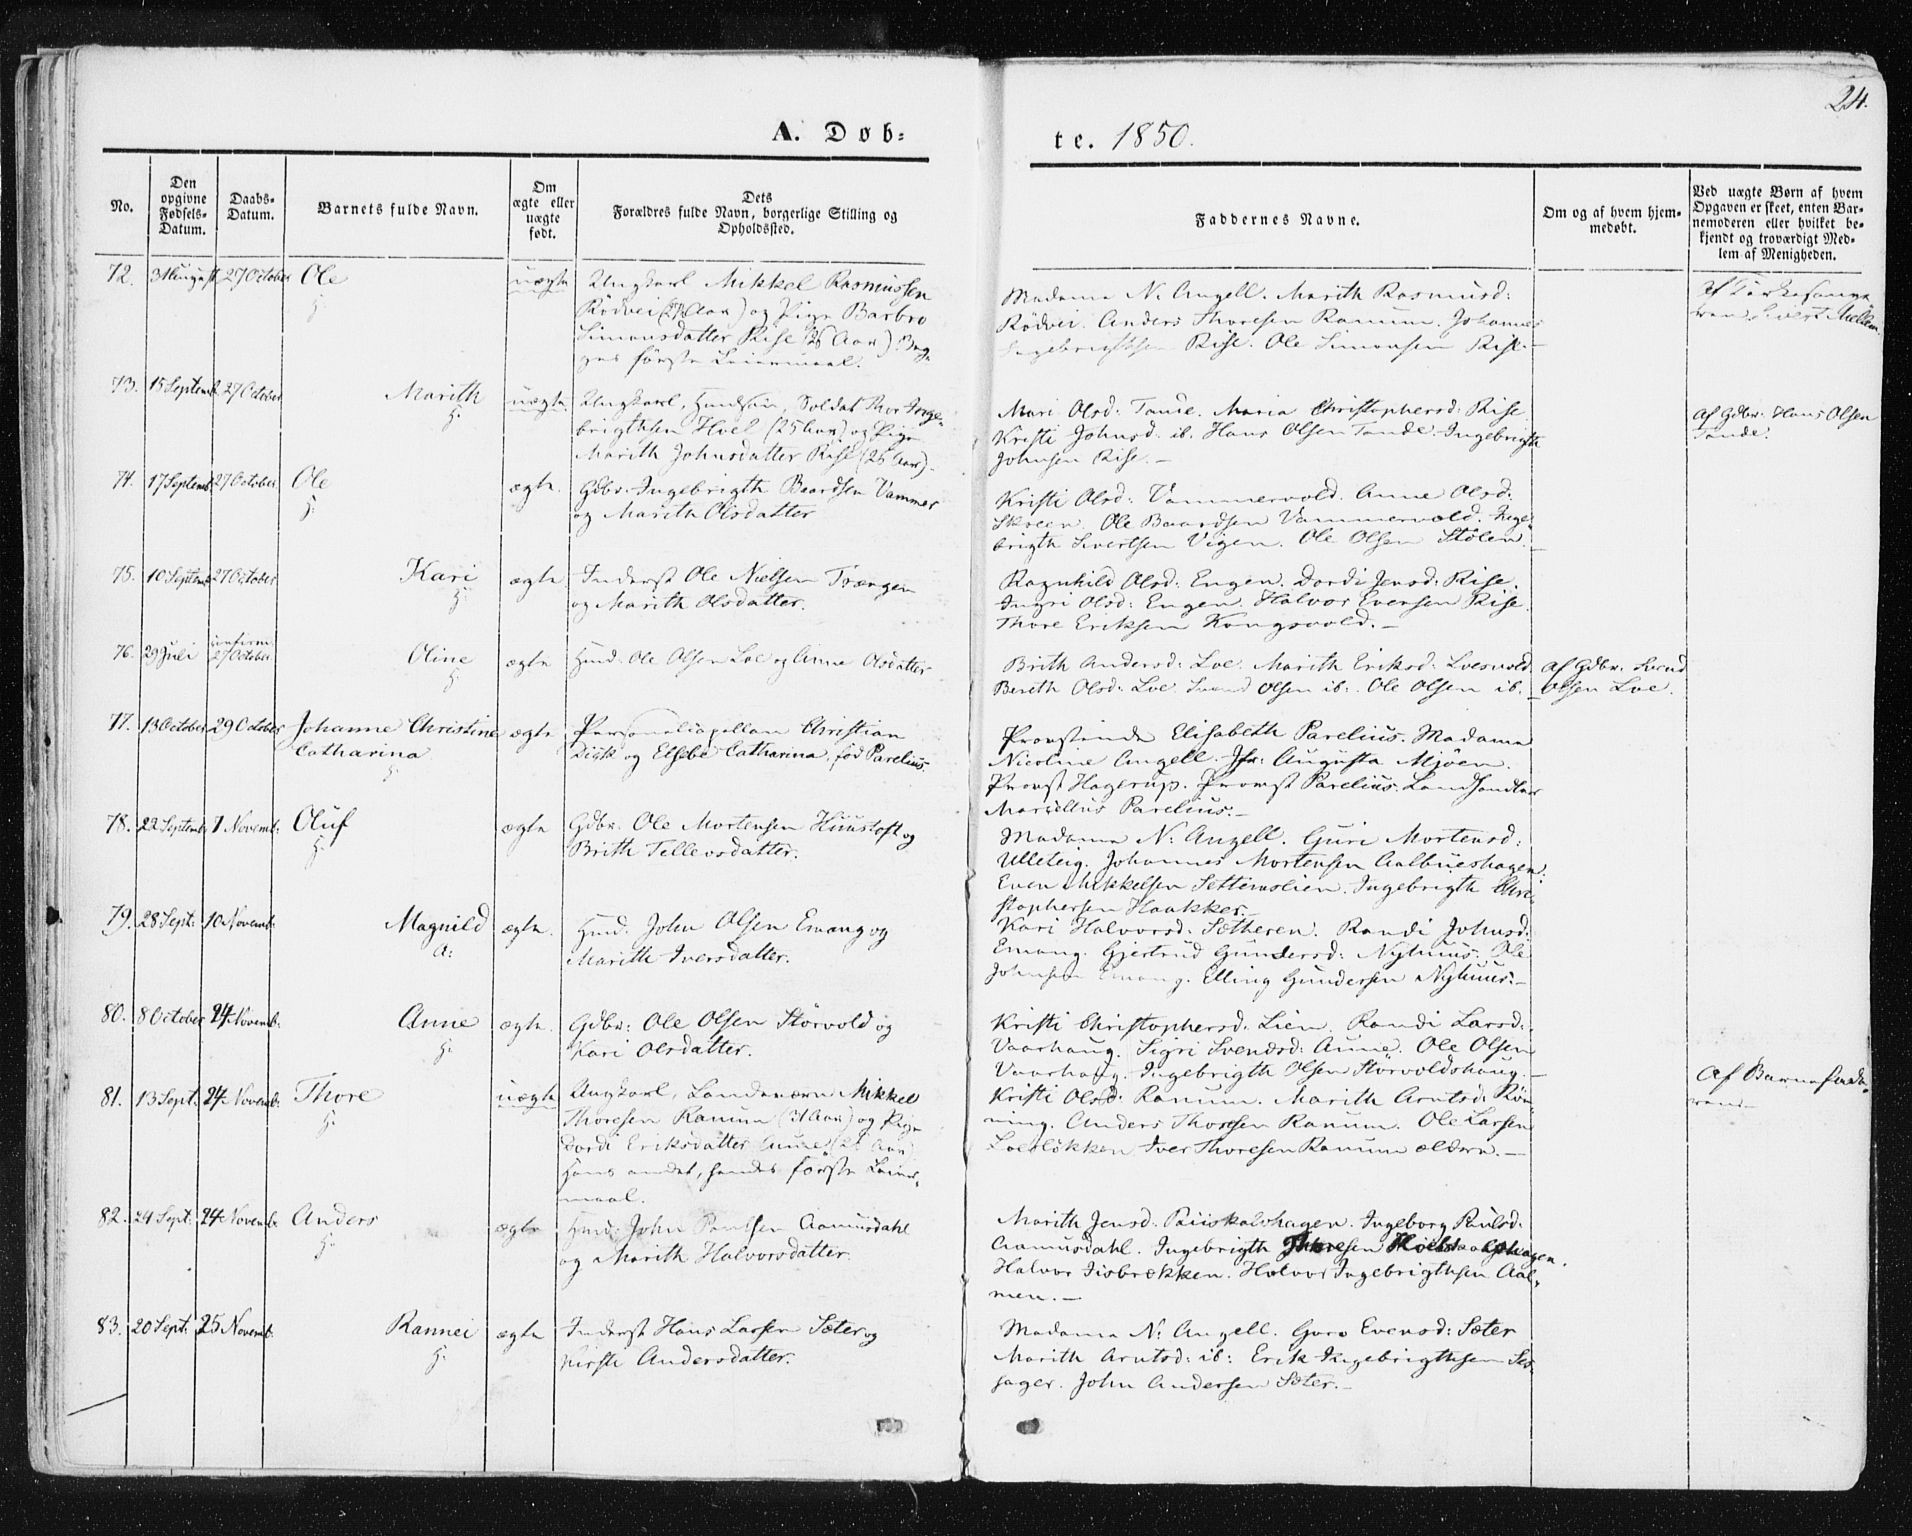 24.
A. Døb-
te. 1850.
No.
Den opgivne Fødsels-Datum.
Daabs-Datum.
Barnets fulde Navn.
Om ægte eller uægte født.
Dets Forældres fulde Navn, borgerlige Stilling og Opholdssted.
Faddernes Navne.
Om og af hvem hjem-medøbt.
Ved uægte Børn af hvem Opgaven er skeet, enten Bar-nemoderen eller hvilket be-kjendt og troværdigt Med-lem af Menigheden.
72. 31 August 27 October Ole uægte Ungkarl Mikkel Rasmussen
H:
Rödvei (27 Aar) og Pige Barbro
Simonsdatter Rise (26 Aar) Beg-
ges første Leiermaal.
Madama N: Angell. Marith Rasmusd:
Rödvei. Anders Thoresen Ranum. Johannes
Ingebrigtsen Rise. Ole Simonsen Rise.-
Af Kirkesanger
Sivert Mellem.
73. 15 Septemb. 27 October Marith uægte Ungkarl, Huusm, Soldat Thor Inge-
H:
brigthsen Hoel (25 Aar) og Pige
Marith Johnsdatter Rise (26 Aar).
Mari Olsd: Tande. Maria Christophersd: Rise.
Kristi Johnsd. ib. Hans Olsen Tande. Ingebrigth
Johnsen Rise.-
Af Gdbr: Hans Olsen
Tande.
74. 17 Septemb 27 October Ole ægte. Gdbr: Ingebrigth Baardsen Vammer
H:
og Marith Olsdatter
Kristi Olsd: Vammervold. Anne Olsd:
Skreen. Ole Baardsen Vammervold. Inge-
brigth Sivertsen Vigen. Ole Olsen Stölen.-
75. 10 Septemb 27 October Kari ægte Inderst Ole Nielsen Tvængen
H:
og Marith Olsdatter.
Ragnhild Olsd: Engen. Dordi Jensd: Rise.
Ingri Olsd: Engen. Halvor Evensen Rise.
Thore Eriksen Kongsvold.-
76. 29 Juli confirm. 27 October Oline ægte Huusm: Ole Olsen Loe og Anne Olsdatter
H:
Brith Andersd: Loe. Marith Eriksd: Loesvold.
Bereth Olsd: Loe. Svend Olsen ib: Ole Olsen ib.-
Af Gdbr: Svend
Olsen Loe.
77. 13 October 29 October Johanne Christine ægte Personelcapellan Christian
Catharina
H:
Digk og Elsebe Catharina, fød Parelius.
Provstinde Elisabeth Parelius. Madama
Nicoline Angell. Jfr: Augusta Mjöen.
Provst Hagerup. Provst Parelius. Landhandler
Marcellius Parelius.-
78. 22 Septemb. 7 Novemb: Oluf ægte Gdbr. Ole Mortensen Huustoft og
H:
Brith Tellevsdatter.
Madama N: Angell. Guri Mortensd:
Ulleleig. Johannes Mortensen Aalbueshagen.
Even Mikkelsen Settemslien. Ingebrigth Chri-
stophersen Haakker.-
79. 28 Sept: 10 Novemb: Magnild ægte. Huusm: John Olsen Emang og
A:
Marith Iversdatter.
Kari Halvorsd: Sætheren. Randi Johnsd:
Emang. Gjertrud Gundersd: Nyhuus. Ole
Johnsen Emang. Elling Gundersen Nyhuus.-
80. 8 October 24 Novemb: Anne ægte. Gdbr: Ole Olsen Störvold og
H:
Kari Olsdatter.
Kristi Christophersd: Lien. Randi Larsd:
Vaarhaug. Sigri Svendsd: Aune. Ole Olsen
Vaarhaug. Ingebrigth Olsen Störvoldshaug.-
81. 13 Sept: 24 Novemb: Thore uægte Ungkarl, Landeværn Mikkel
H:
Thoresen Ranum (31 Aar) og Pige
Dordi Eriksdatter Aune (26 Aar)
Hans andet, hendes første Leier-
maal.
Kristi Olsd: Ranum. Marith Arntsd: Rön-
ning. Anders Thoresen Ranum. Ole Larsen
Loeslökken. Iver Thoresen Ranum ældern.-
Af Barnefade-
ren.-
82. 24 Sept: 24 Novemb: Anders ægte Huusm: John Poulsen Aamusdahl
H:
og Marith Halvorsdatter.
Marith Jensd: Puiskalshagen. Ingeborg Poulsd:
Aamusdahl. Ingebrigth Thoresen
Halvor Iisbrekken. Halvor Ingebrigthsen Aal-
men.-
83. 20 Sept: 25 Novemb. Rannei ægte Inderst Hans Larsen Sæter og
H:
Kirsti Andersdatter.
Madama N: Angell. Guro Evensd: Sæter
Marith Arntsd: ib: Erik Ingebrigthsen Ses-
hager. John Andersen Sæter.-